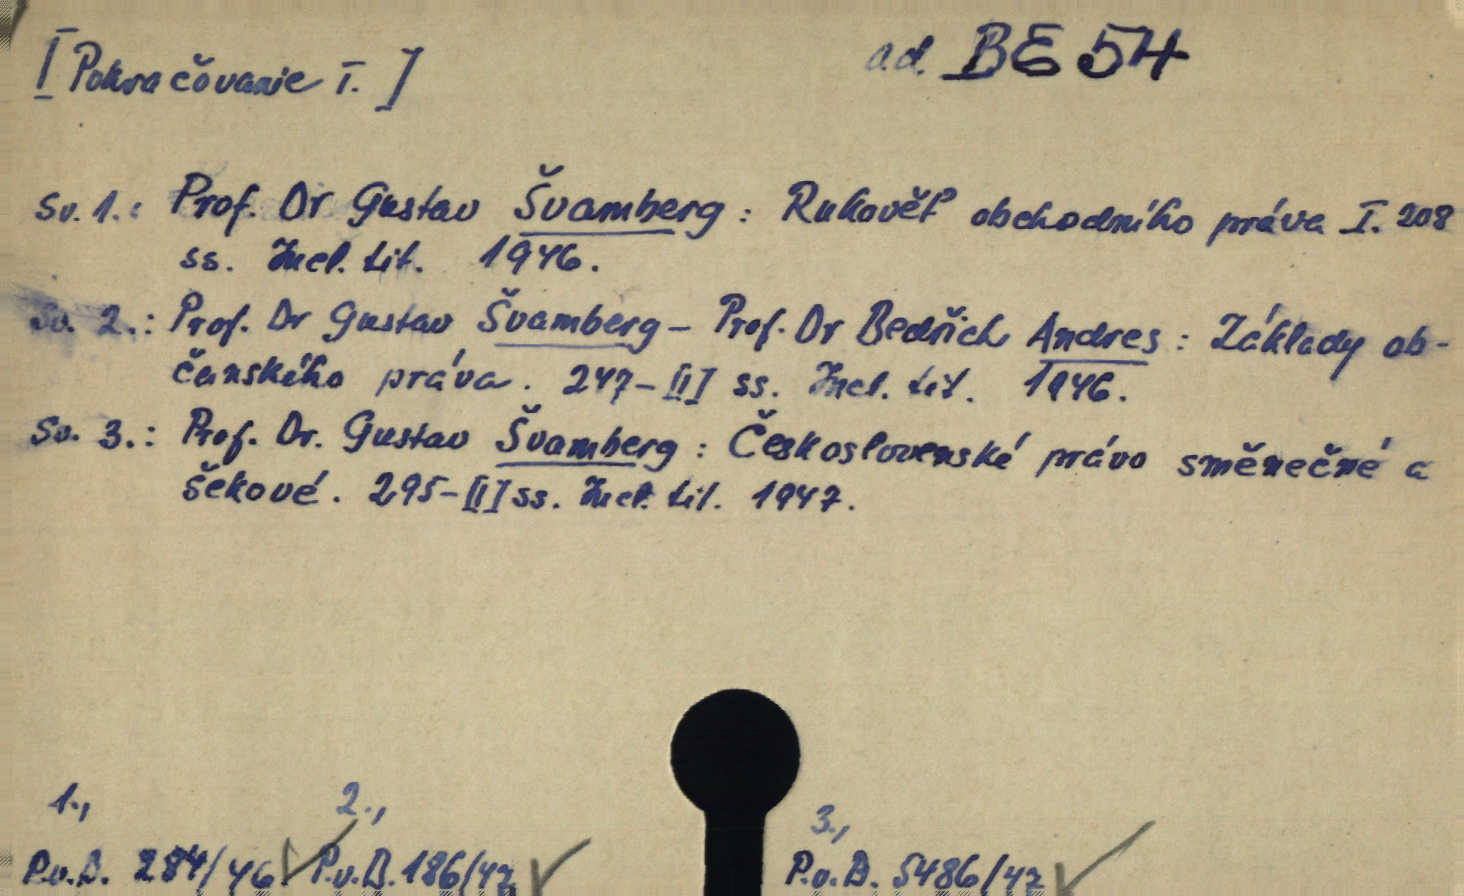 [Pokračovanie I.] ad. BE 54
Sv. 1.: Prof. Dr Gustav Švamberg: Rukověť obchodního práva I. 208
ss. Incl. tit. 1946.
Sv. 2.: Prof. Dr Gustav Švamberg – Prof. Dr Bedřich Andres: Základy ob-
čanského práva. 247–[I] ss. Incl. tit. 1946.
Sv. 3.: Prof. Dr. Gustav Švamberg: Československé právo směnečné a
šekové. 295–[I] ss. Incl. tit. 1947.
1., 2., 3.,
P.v.D. 284/46. P.v.D. 186/47 P.v.D. 5486/47